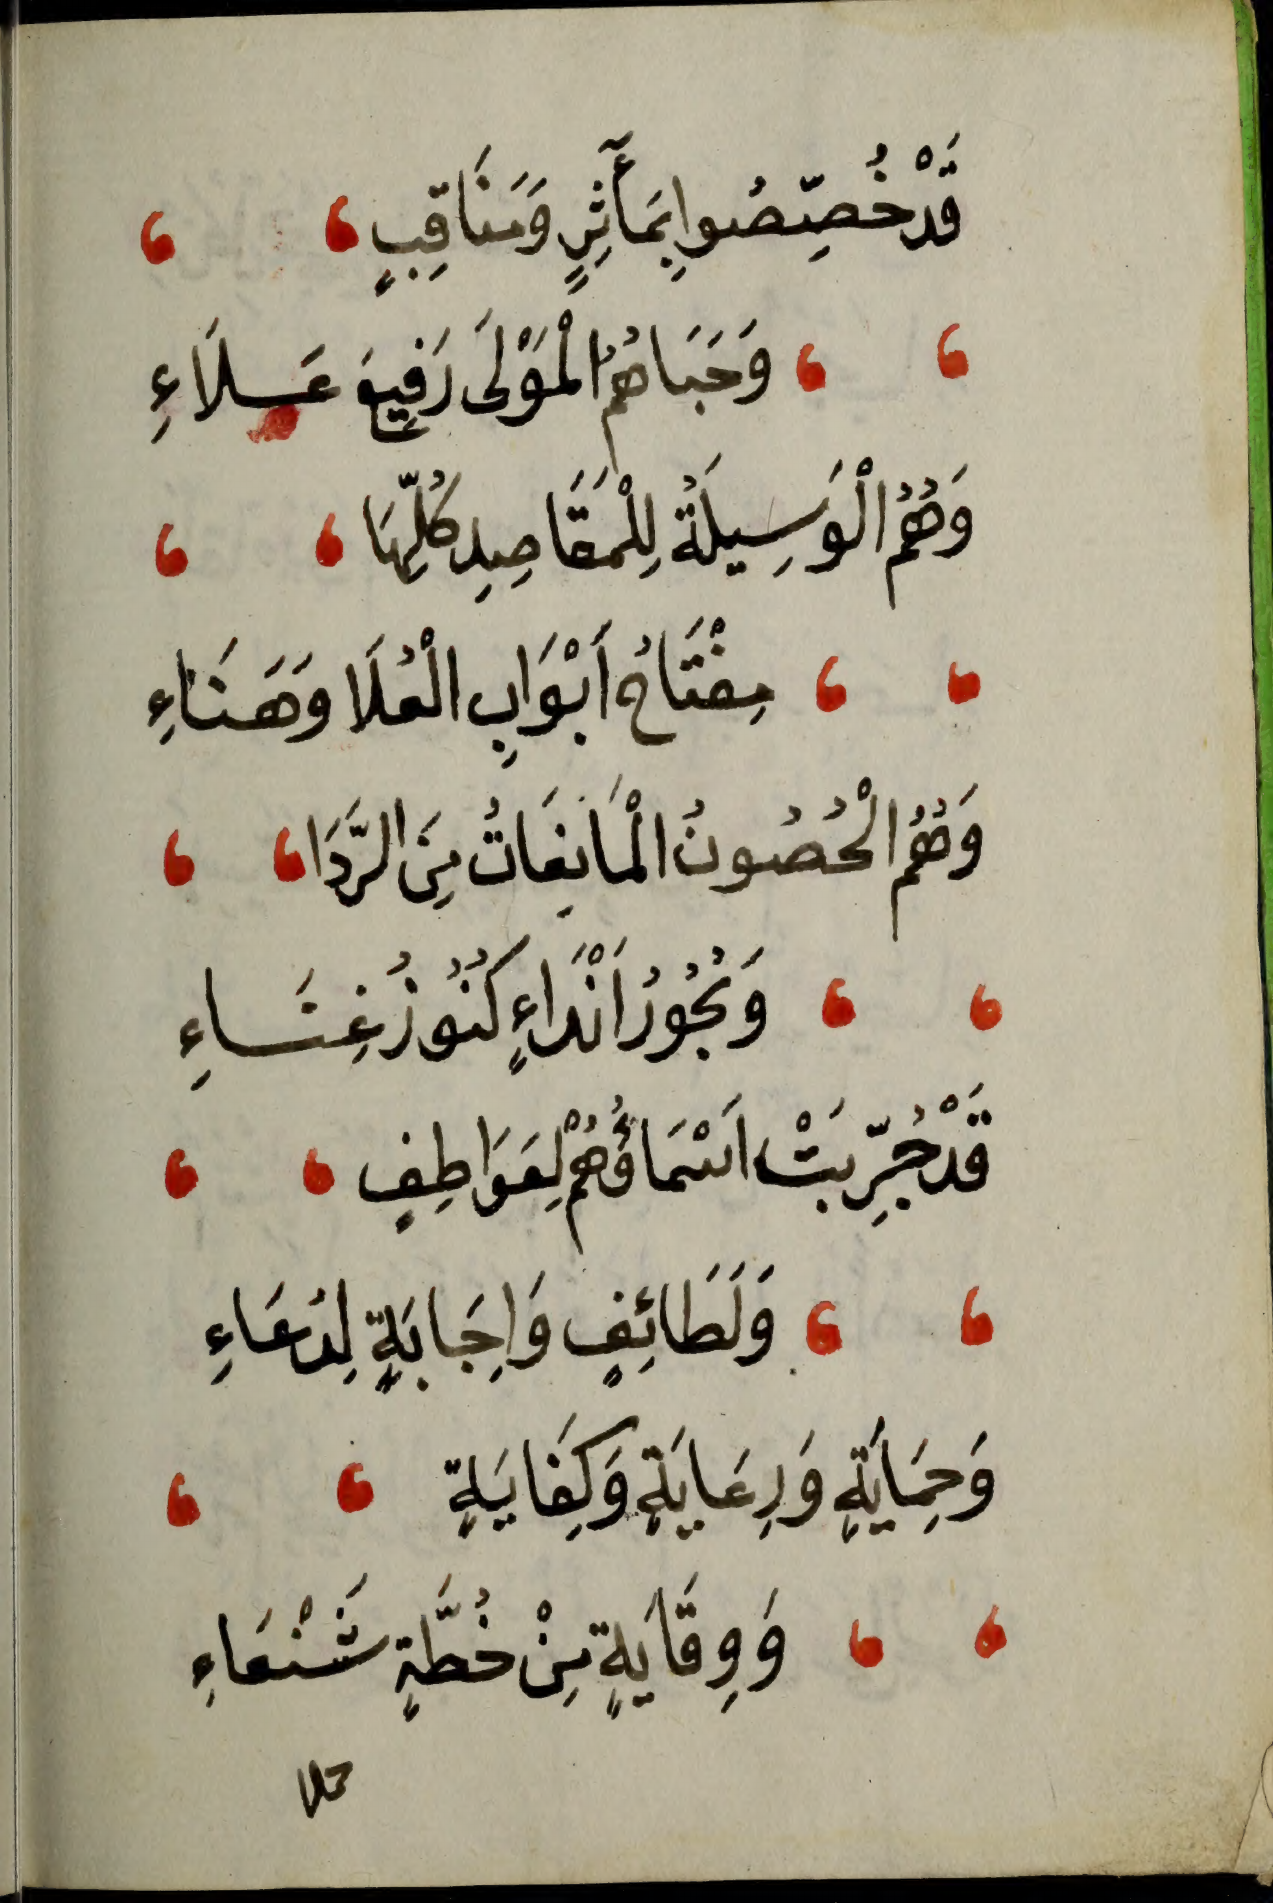 قَدْ خُصِّصُوا بِمَآَثِرٍ وَمَنَاقِبٍ
وَحَبَاهُمُ الْمَوْلَى رَفِيعَ عَلَاءِ
وَهُمُ الْوَسِيلَةُ لِلْمَقَاصِدِ كُلِّهَا
مِفْتَاحُ أَبْوَابِ الْعُلَا وَهَنَاءِ
وَهُمُ الْحُصُونُ الْمَانِعَاتُ مِنَ الرَّدَا
وَبُحُورُ اَنْدَاءٍ كُنُوزُ غِنَاءِ
قَدْ جُرِّبَتْ اَسْمَاؤُهُمْ لِعَوَاطِفٍ
وَلَطَائِفٍ وَاِجَابَةٍ لِدُعَاءِ
وَحِمَايَةٍ وَرِعَايَةٍ وَكِفَايَةٍ
وَوِقَايَةٍ مِنْ خُطَّةٍ شَنْعَاءِ